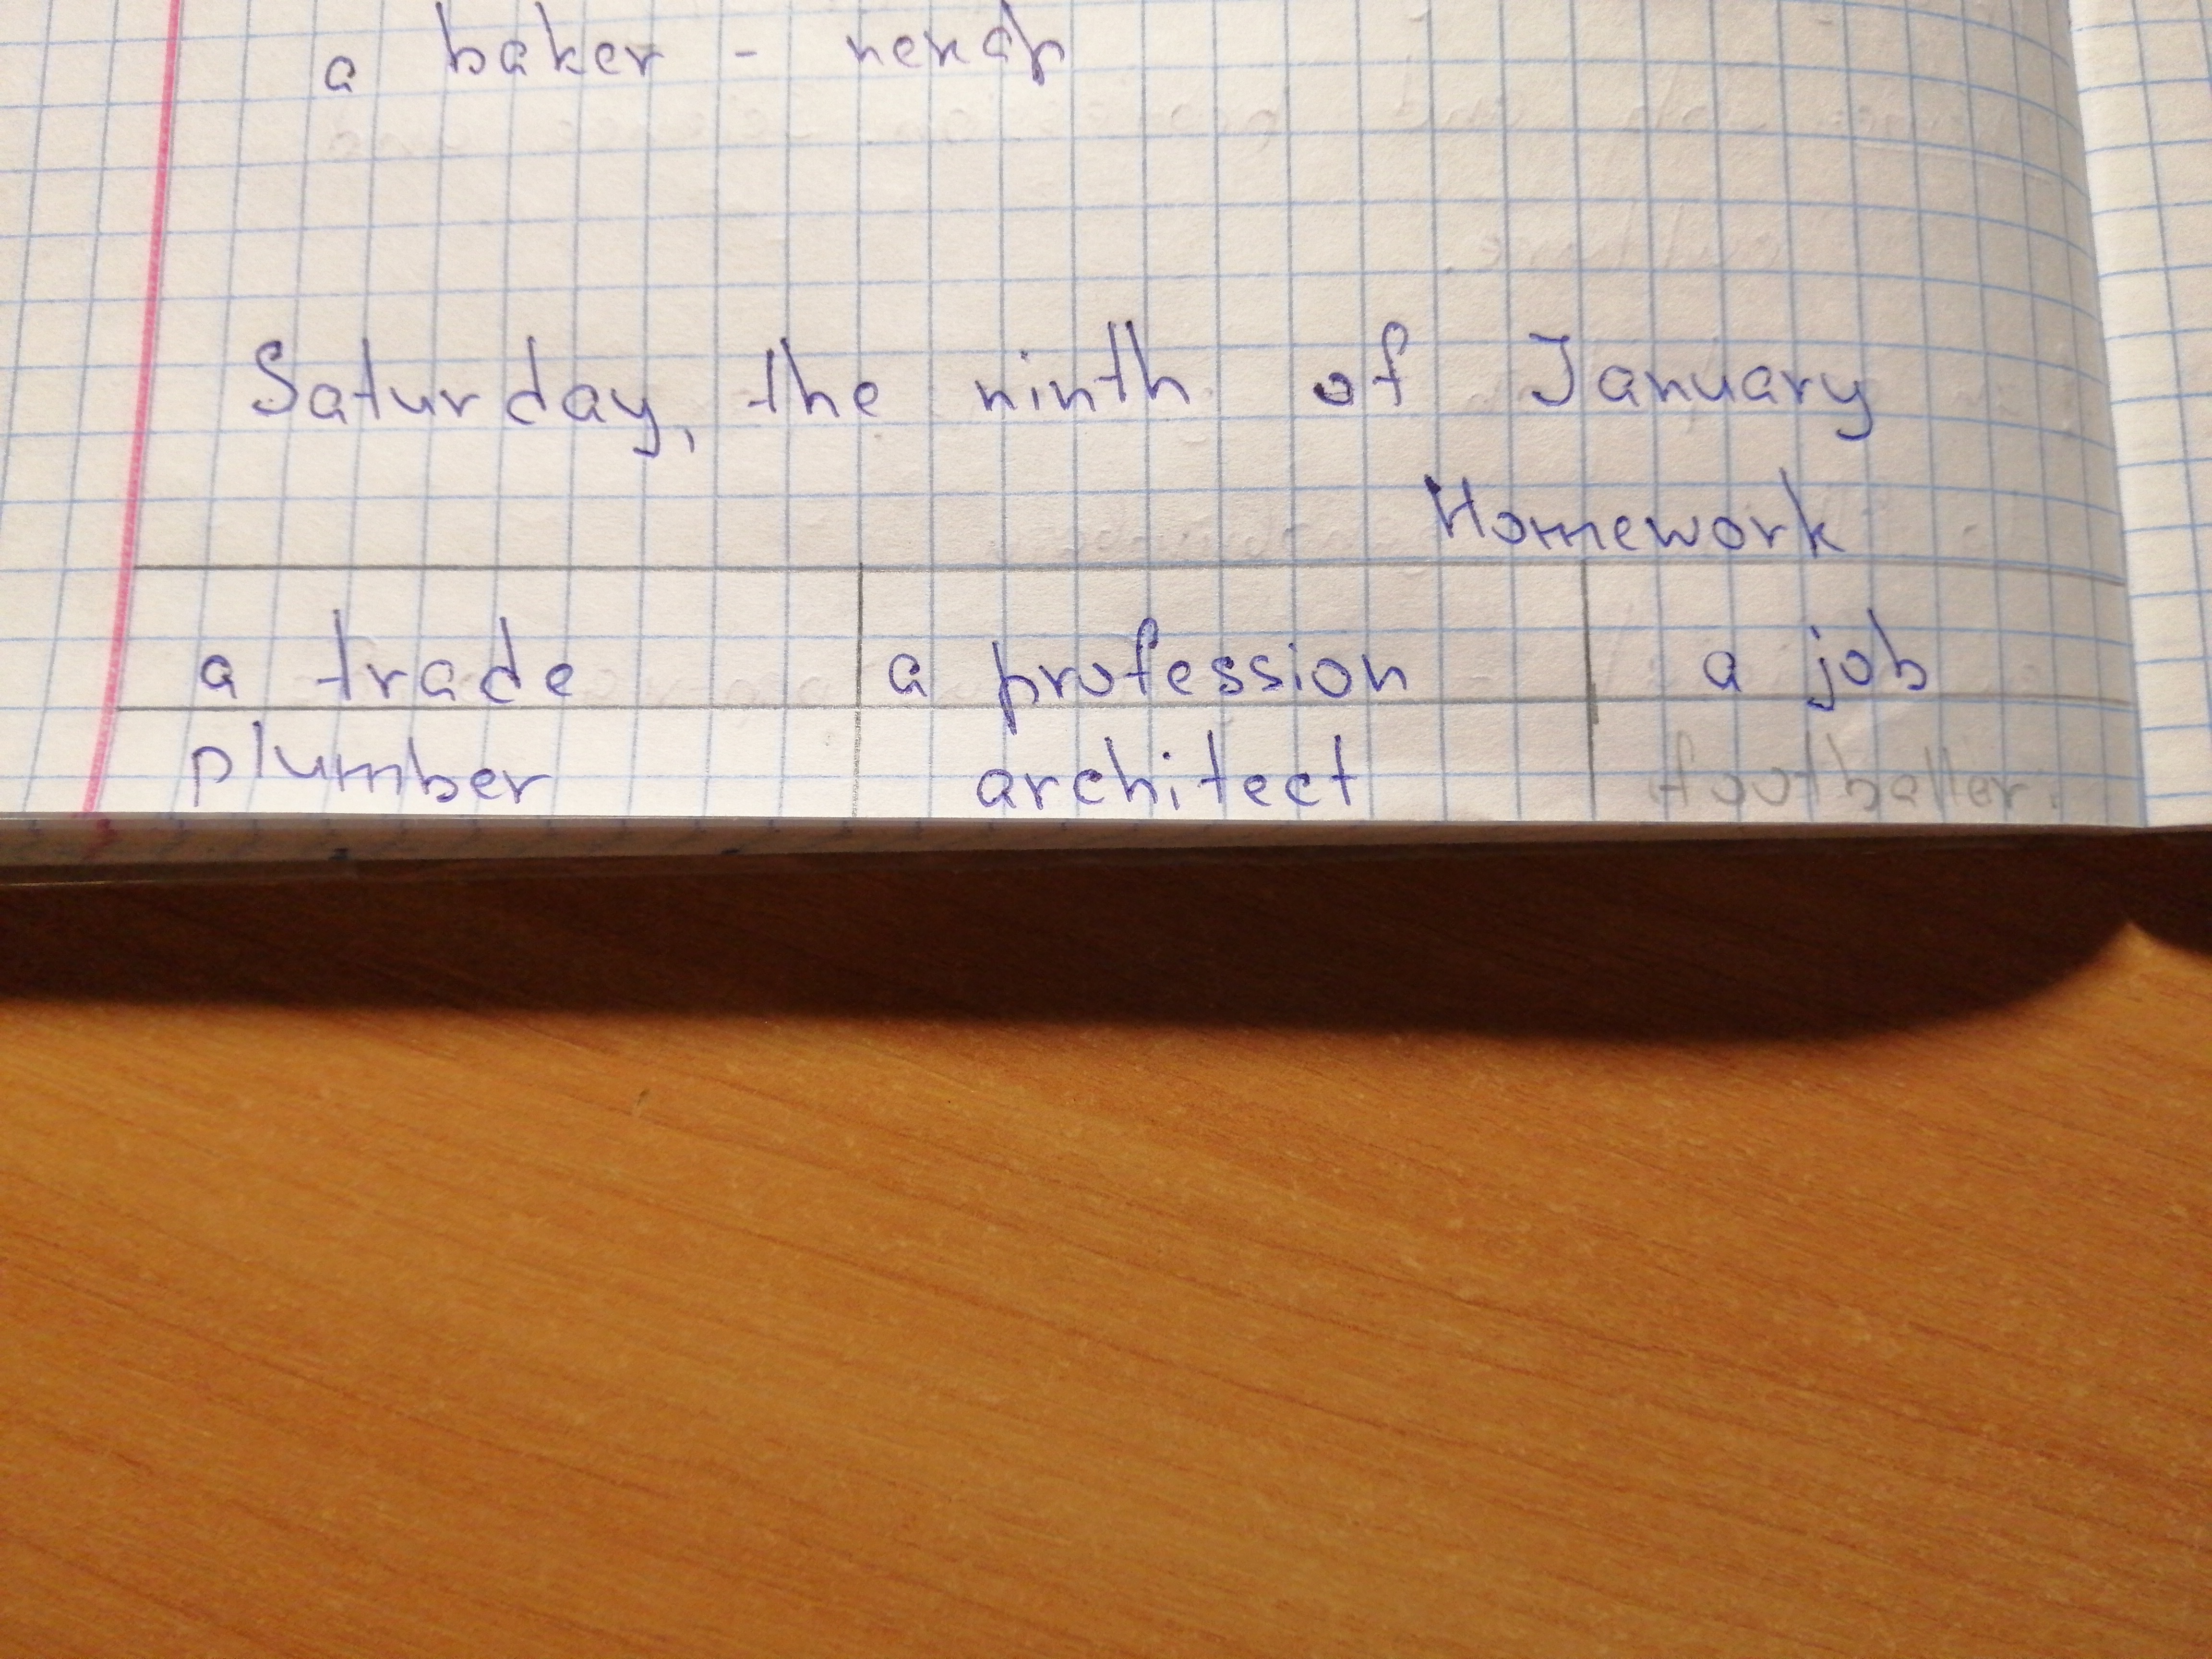 a baker - пекар
Saturday, the ninth of January
Homework
a trade a profession a job
plumber architect footballer